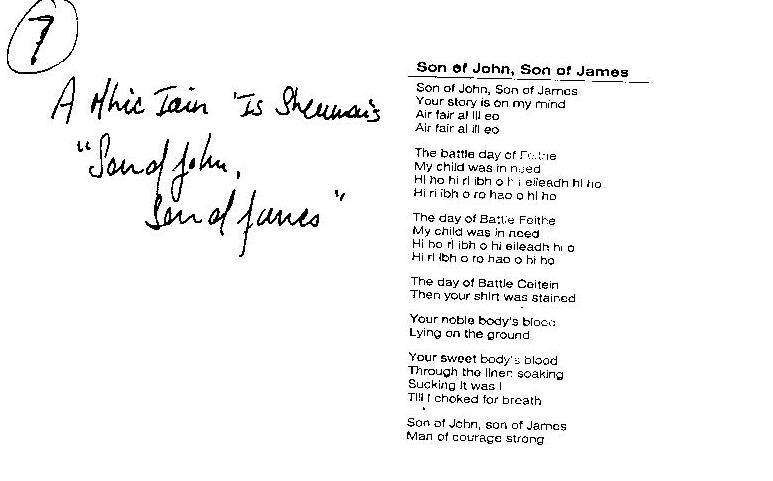 7
A Mhic Iain 'Is Sheumais
"Son of John,
Son of James"
Son of John, Son of James
Son of John, Son of James
Your story is on my mind
Air fair al ill eo
Air fair al ill eo
The battle day of Feithe
My child was in need
Hi ho hi ri ibh o hi eileadh hi ho
Hi ri ibh o ro hao o hi ho
The day of Battle Feithe
My child was in need
Hi ho ri ibh o hi eileadh hi o
Hi ri ibh o ro hao o hi ho
The day of Battle Ceitein
Then your shirt was stained
Your noble body's blood
Lying on the ground
Your sweet body's blood
Through the linen soaking
Sucking it was I
Till I choked for breath
Son of John, son of James
Man of courage strong